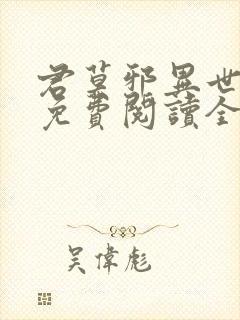 君莫邪異世
免費閱讀全
吳偉彪